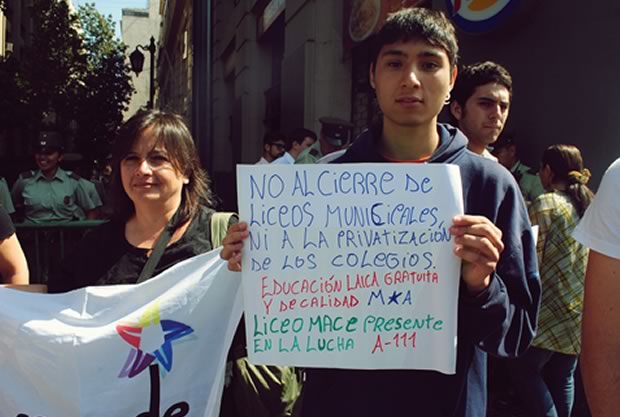 NO AL CIERRE DE
LICEOS MUNICIPALES,
NI A LA PRIVATIZACIÓN
DE LOS COLEGIOS.
EDUCACIÓN LAICA GRATUITA
Y DE CALIDAD M★A
LICEO MACE PRESENTE
EN LA LUCHA A-111
de